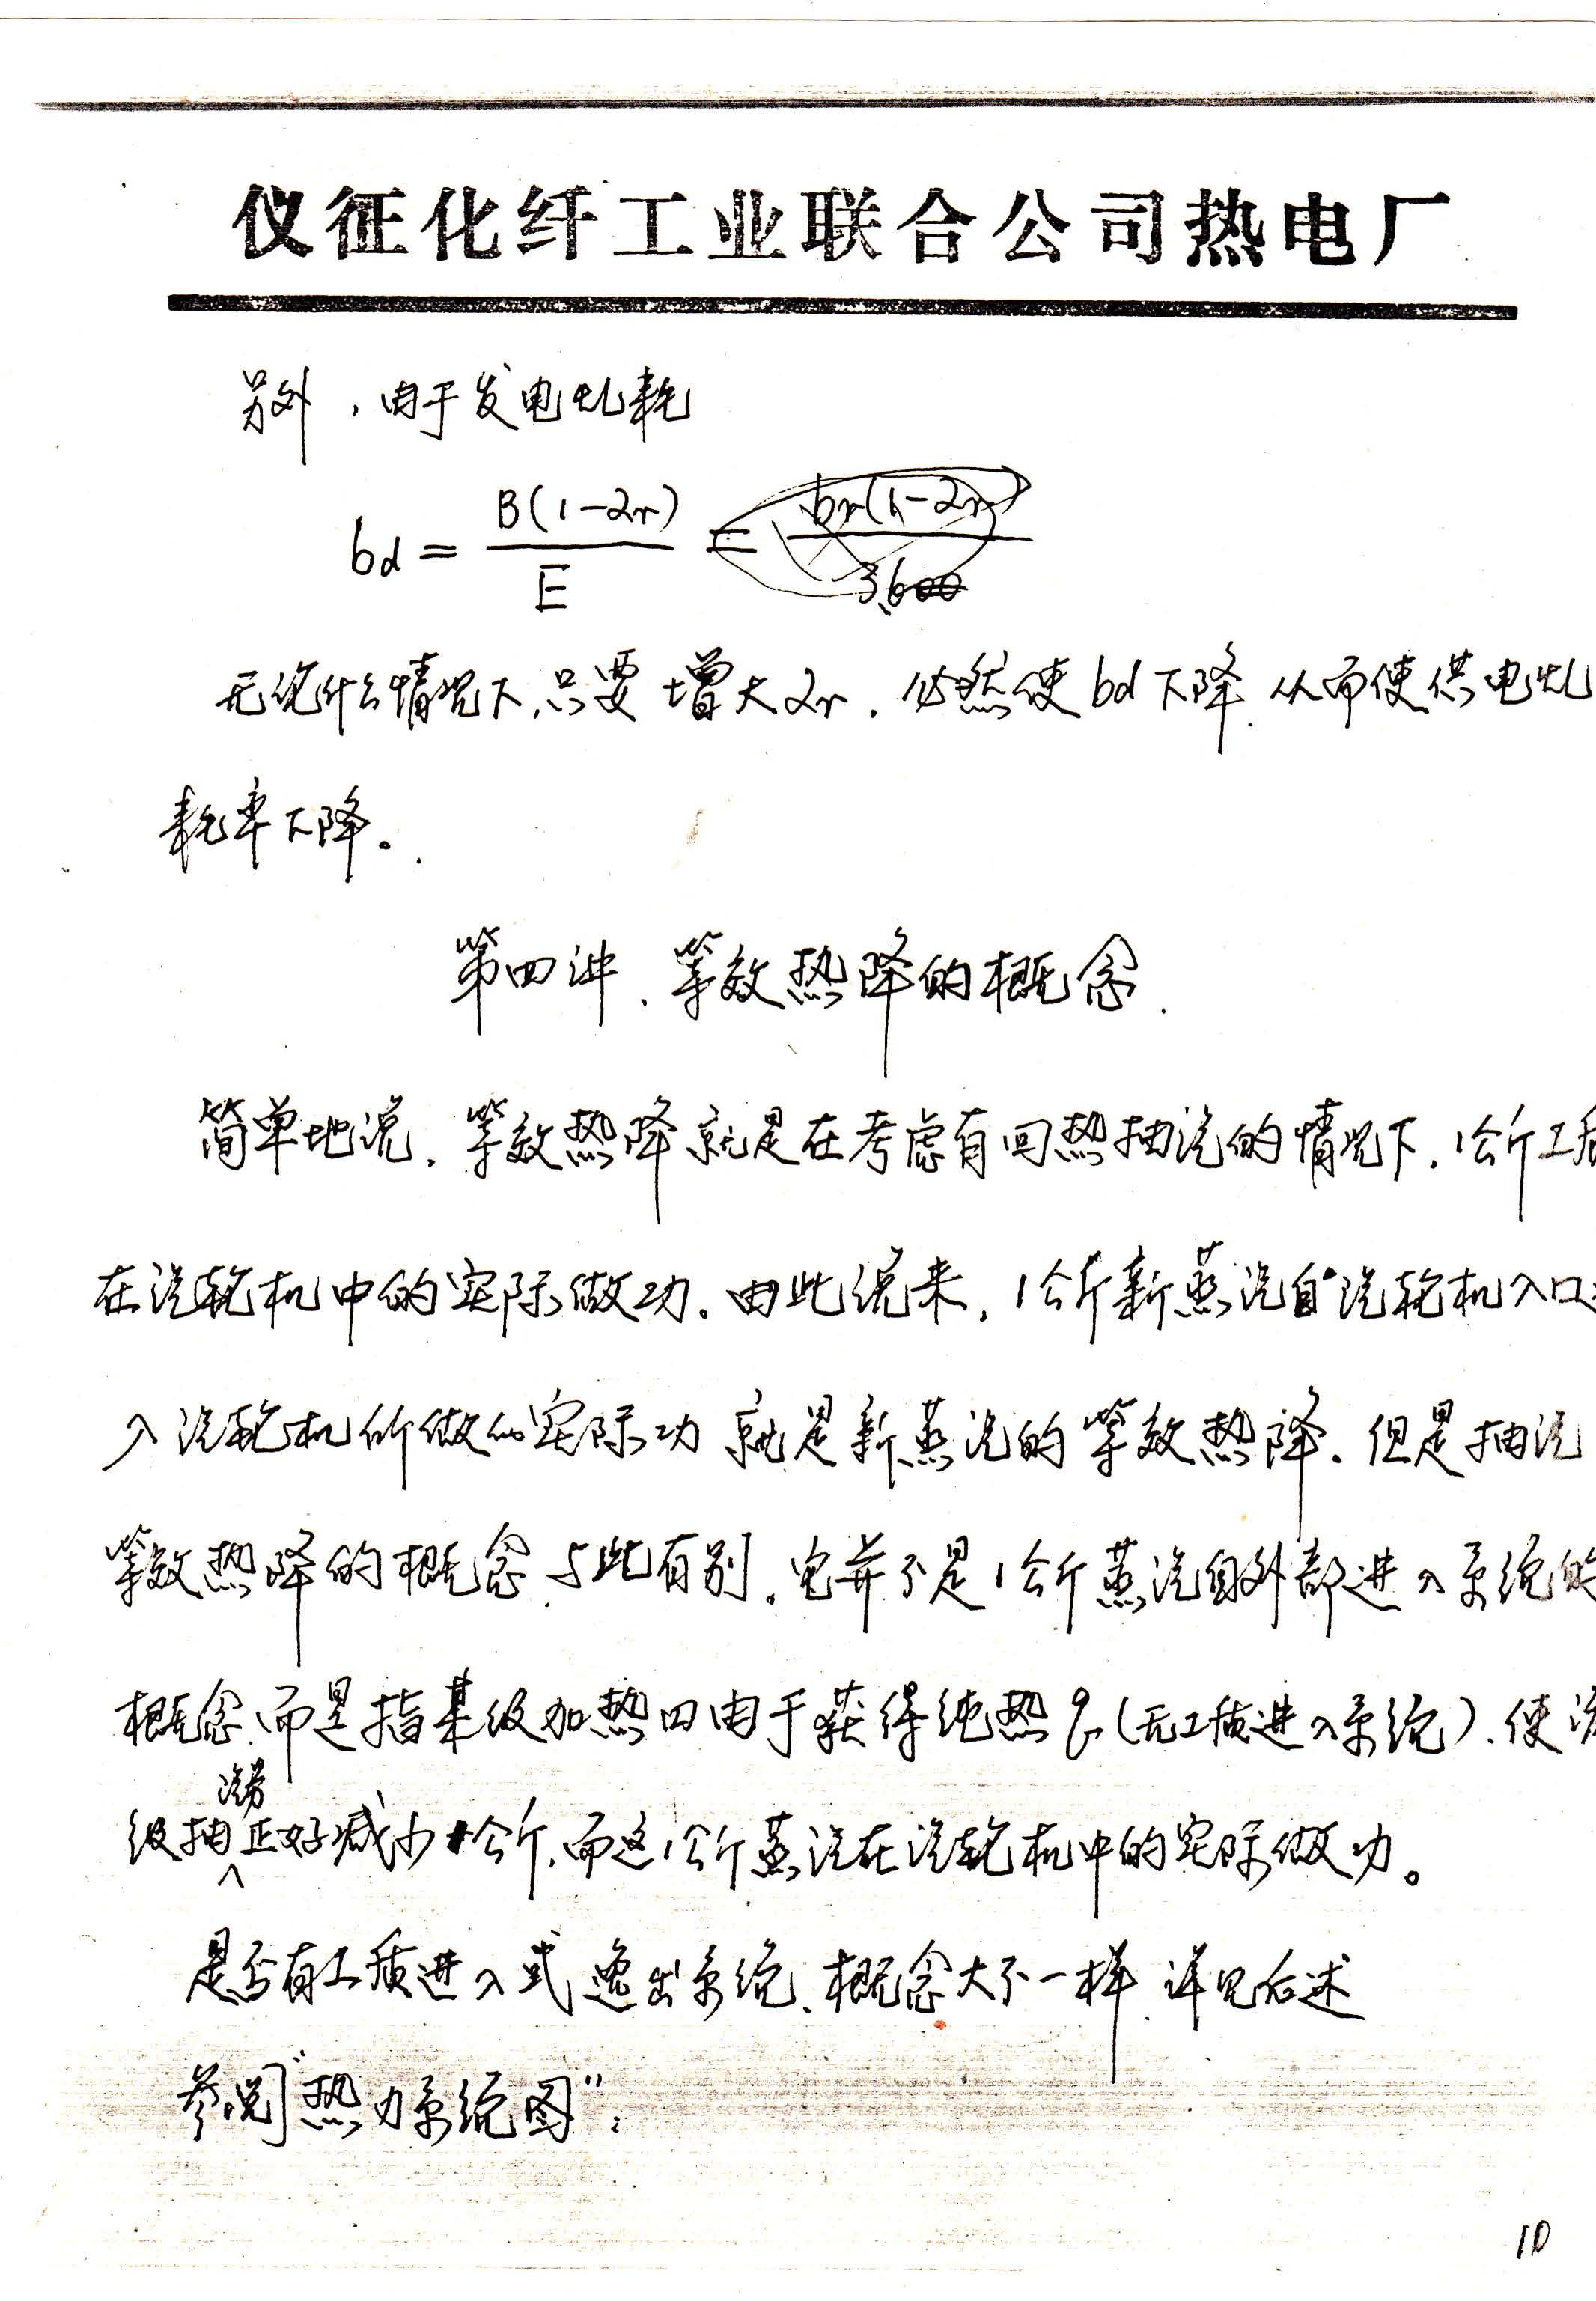 仪征化纤工业联合公司热电厂
另外，由于发电煤耗
bd = B(1-αr) / E = br(1-αr) / 3600
无论什么情况下，只要增大αr，必然使bd下降，从而使供电煤
耗率下降。
第四讲、等效热降的概念
简单地说，等效热降就是在考虑有回热抽汽的情况下，1公斤工质
在汽轮机中的实际做功。由此说来，1公斤新蒸汽自汽轮机入口
入汽轮机所做的实际功就是新蒸汽的等效热降。但是抽汽
等效热降的概念与此有别。它并不是1公斤蒸汽自外部进入系统的
概念，而是指某级加热四由于获得纯热q（无工质进入系统），使该
汽另
级抽正好减少1公斤，而这1公斤蒸汽在汽轮机中的实际做功。
是否有工质进入或逸出系统、概念大不一样，详见后述
参阅"热力系统图"：
10